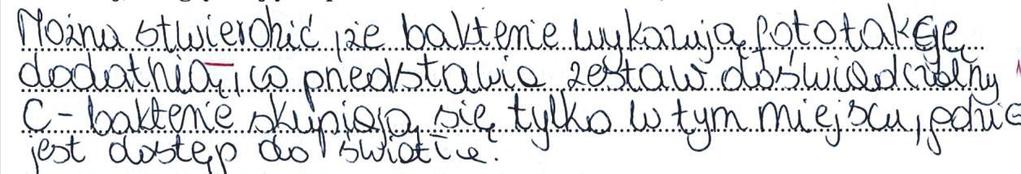 Można stwierdzić, że bakterie wykazują fototaksję
dodatnią, co przedstawia zestaw doświadczalny
C - bakterie skupiają się tylko w tym miejscu, gdzie
jest dostęp do światła.